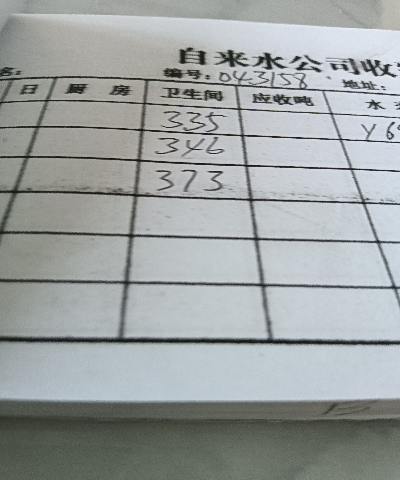 自来水公司收
名: 编号: 043158 地址:
日 厨房 卫生间 应收吨 水
335 Y6
346
373